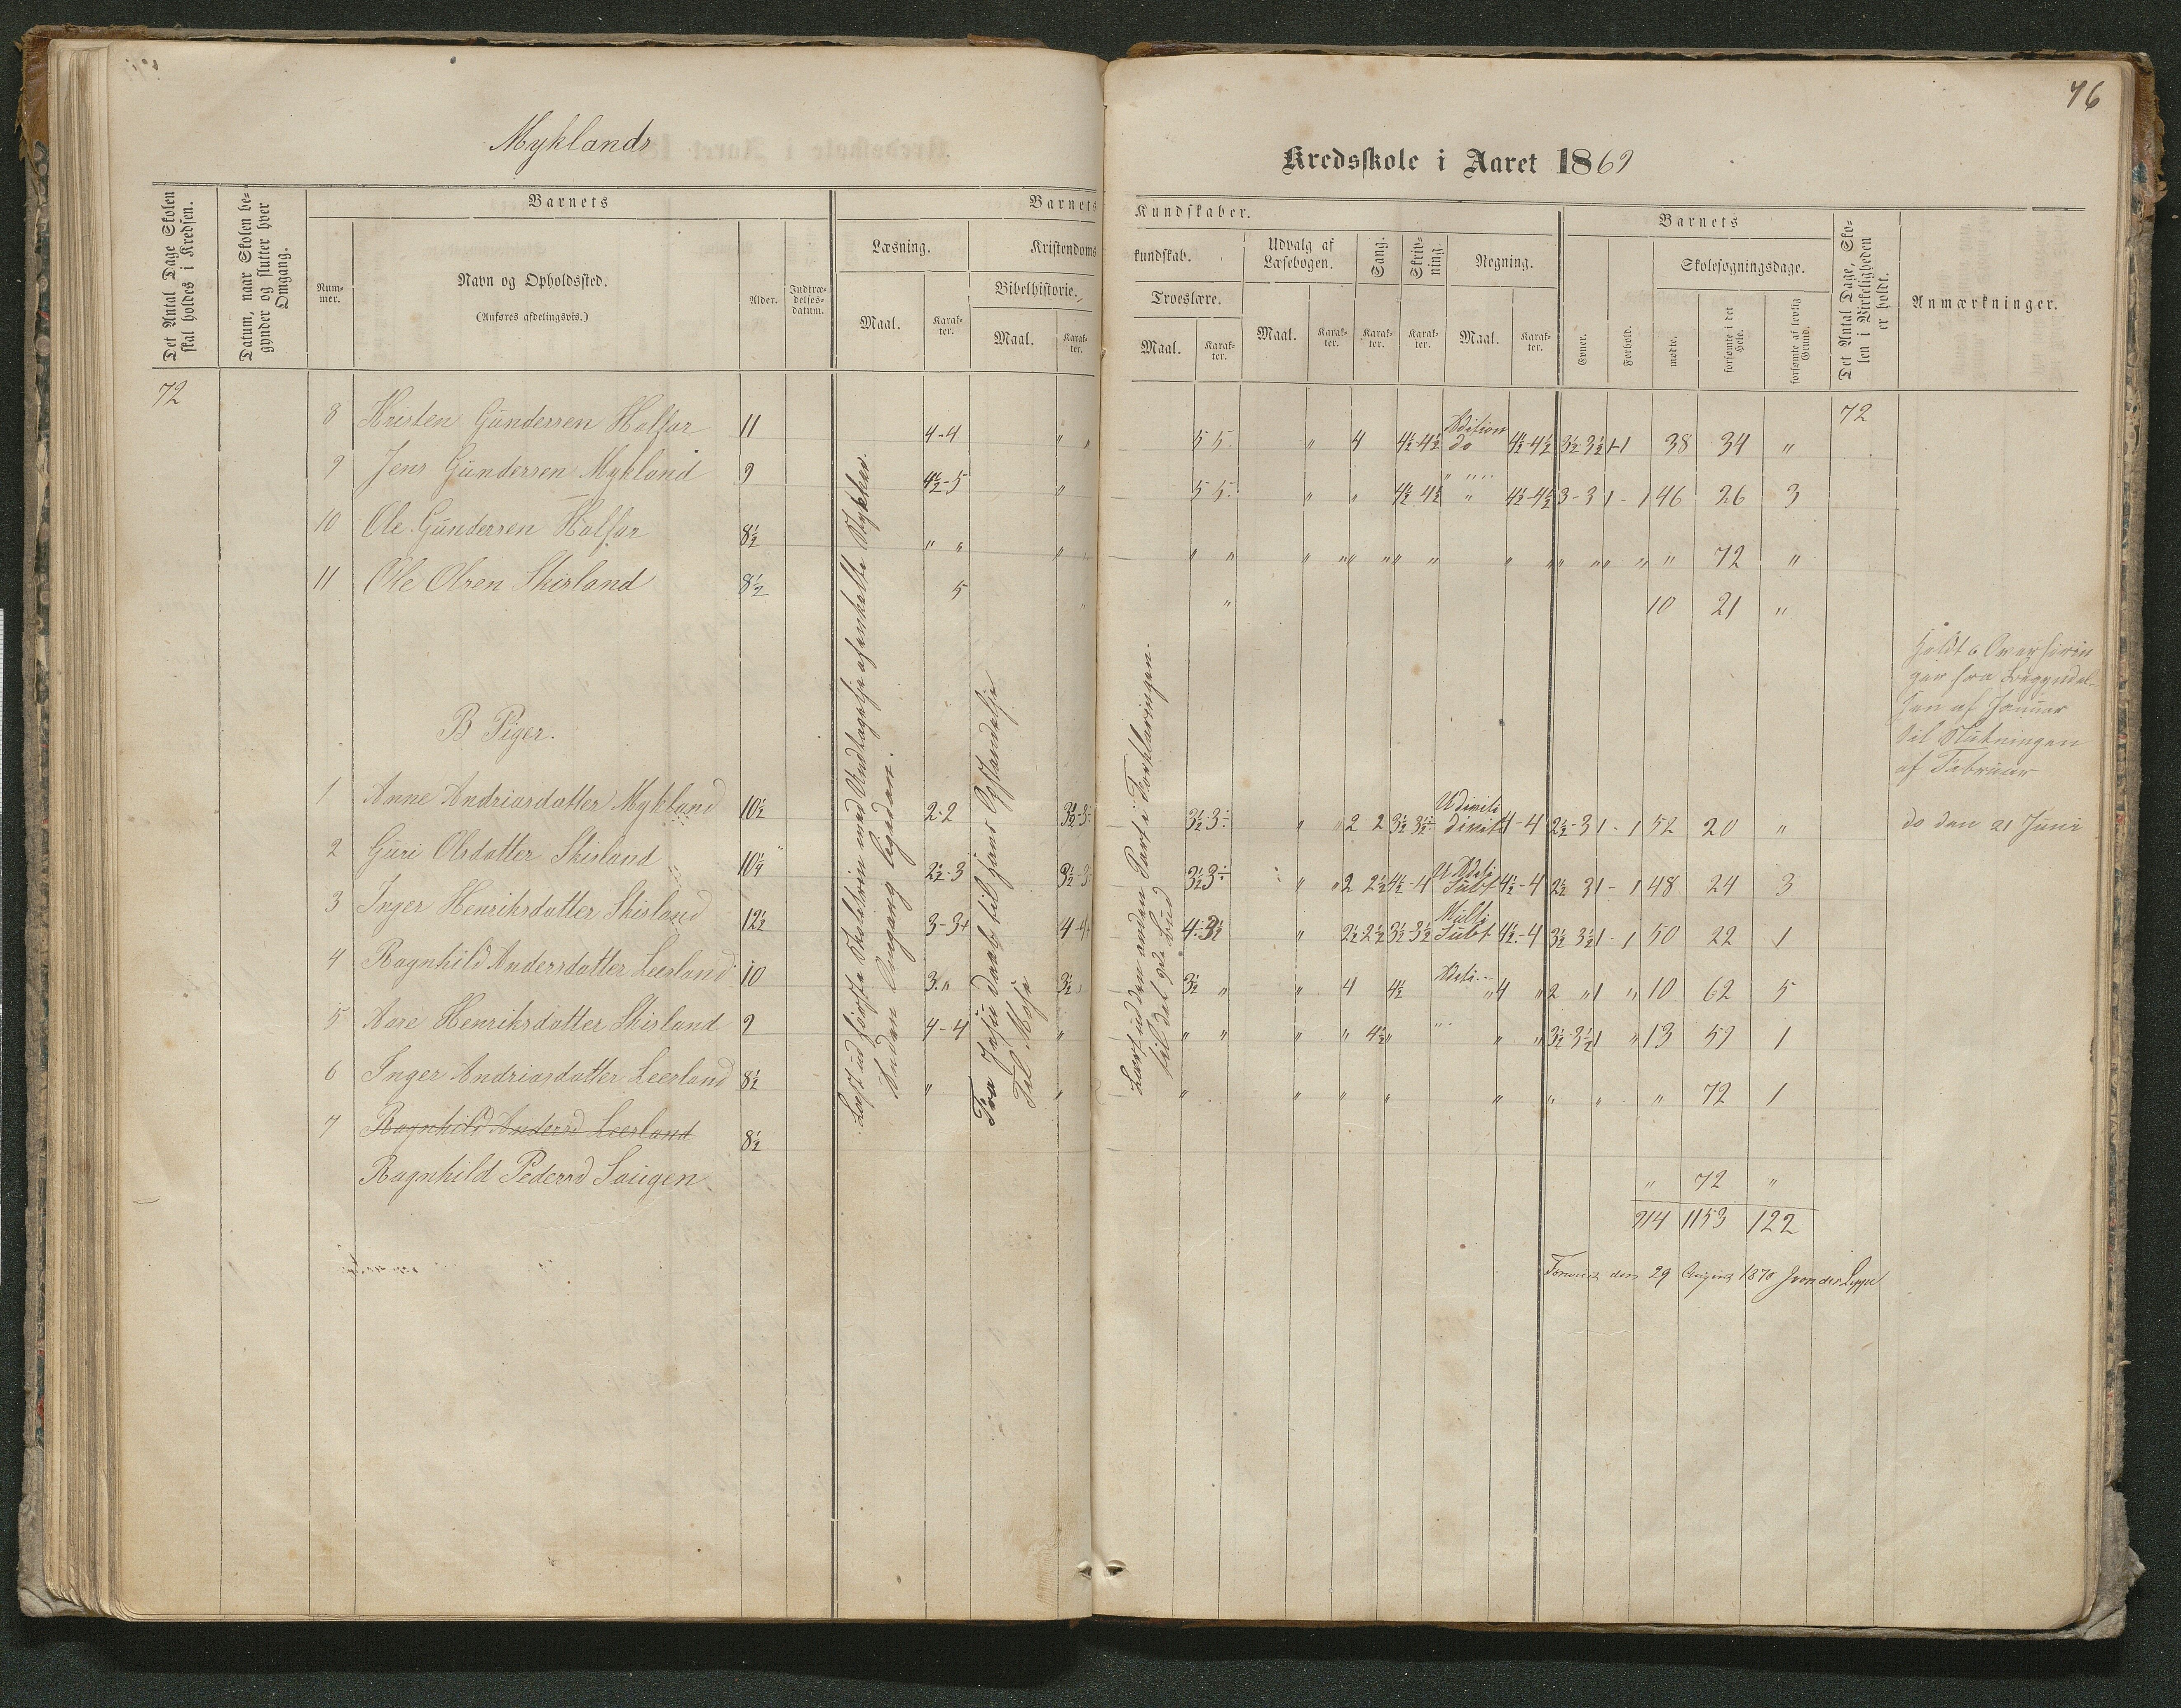 76
Myklands
Kredsskole i Aaret 1869
Det Antal Dage Skolen skal holdes i Kredsen.
Datum, naar Skolen begynder og slutter hver Omgang.
Barnets
Nummer.
Navn og Opholdssted.
(Anføres afdelingsvis.)
Alder.
Indtrædelsesdatum.
Barnets Kundskaber.
Læsning.
Maal.
Karakter.
Kristendomskundskab.
Bibelhistorie.
Maal.
Karakter.
Troeslære.
Maal.
Karakter.
Udvalg af Læsebogen.
Maal.
Karakter.
Sang.
Karakter.
Skrivning.
Karakter.
Regning.
Maal.
Karakter.
Barnets
Evner.
Forhold.
Skolesøgningsdage.
mødte.
forsømte i det Hele.
forsømte af lovlig Grund.
Det Antal Dage, Skolen i Virkeligheden er holdt.
Anmærkninger.
72
72
8 Kristen Gundersen Holfar 11 4-4 " " 5 5 " 4 4½-4½ Adition do 4½-4½ 3½-3½ 1-1 38 34 "
9 Jens Gundersen Mykland 9 4½-5 " 5 5 " " 4½ 4½ " 4½-4½ 3-3 1-1 46 26 3
10 Ole Gundersen Holfar 8½ " " " " " " " " " " " " 72 "
11 Ole Olsen Skisland 8½ 5 " " 10 21 "
B Piger.
1 Anne Andriasdatter Mykland 10½ 2-2 3½-3 3½-3 " 2 2 3½ 3½ Divisi 4-4 2½-3 1-1 52 20 "
2 Guri Olsdatter Skisland 10¼ 2½-3 3½-3 3½ 3 " 2 2½ 4½-4 Subt 4½-4 2½ 3 1-1 48 24 3
3 Inger Henriksdatter Skisland 12½ 3-3+ 4-4 4-3½ " 2½ 2½ 3½-3½ Multi Subt 4½-4 3½ 3½ 1-1 50 22 1
4 Ragnhild Andersdatter Leesland 10 3 " 3½ 3½ " " 4 4½ Adti " 4 " 2 " 1 " 10 62 5
5 Aase Henriksdatter Skisland 9 4-4 " " " " " 4½ " " " 3½-3½ 1 " 13 59 1
6 Inger Andriasdatter Leesland 8½ " " " " " " " " " " 72 1
7 Ragnhild Andersd Leesland 8½
Ragnhild Pedersd Saugen " 72 "
914 1153 122
Læst ud første Skoletrin med Undtagelse af enkelte Stykker.
Anden Omgang ligedan.
Fra Jesu Daab til hans Opstandelse
Til Mose
Læst ud den anden Part i Forklaringen.
til det 9de Bud
Holdt 6 Overhørin
ger fra Begyndel-
sen af Januar
til Slutningen
af Februar
do den 21 Juni
den 29 August 1870 J von der Lippe